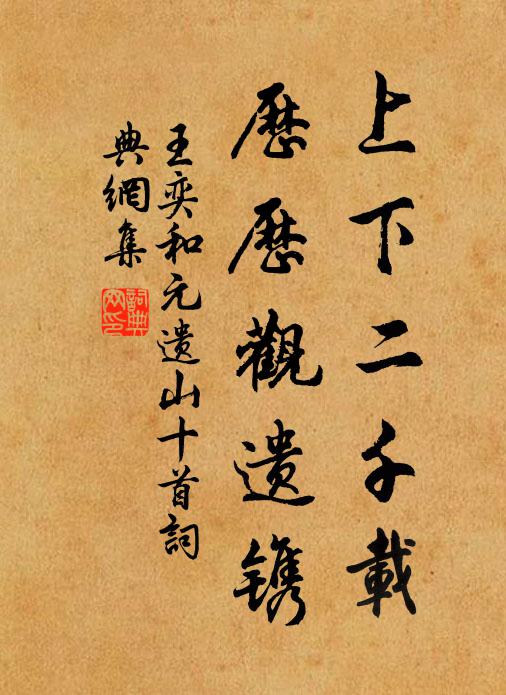 上下二千載
歷歷觀遺镌
王奕和元遺山十首詞
典網集
詞典网印